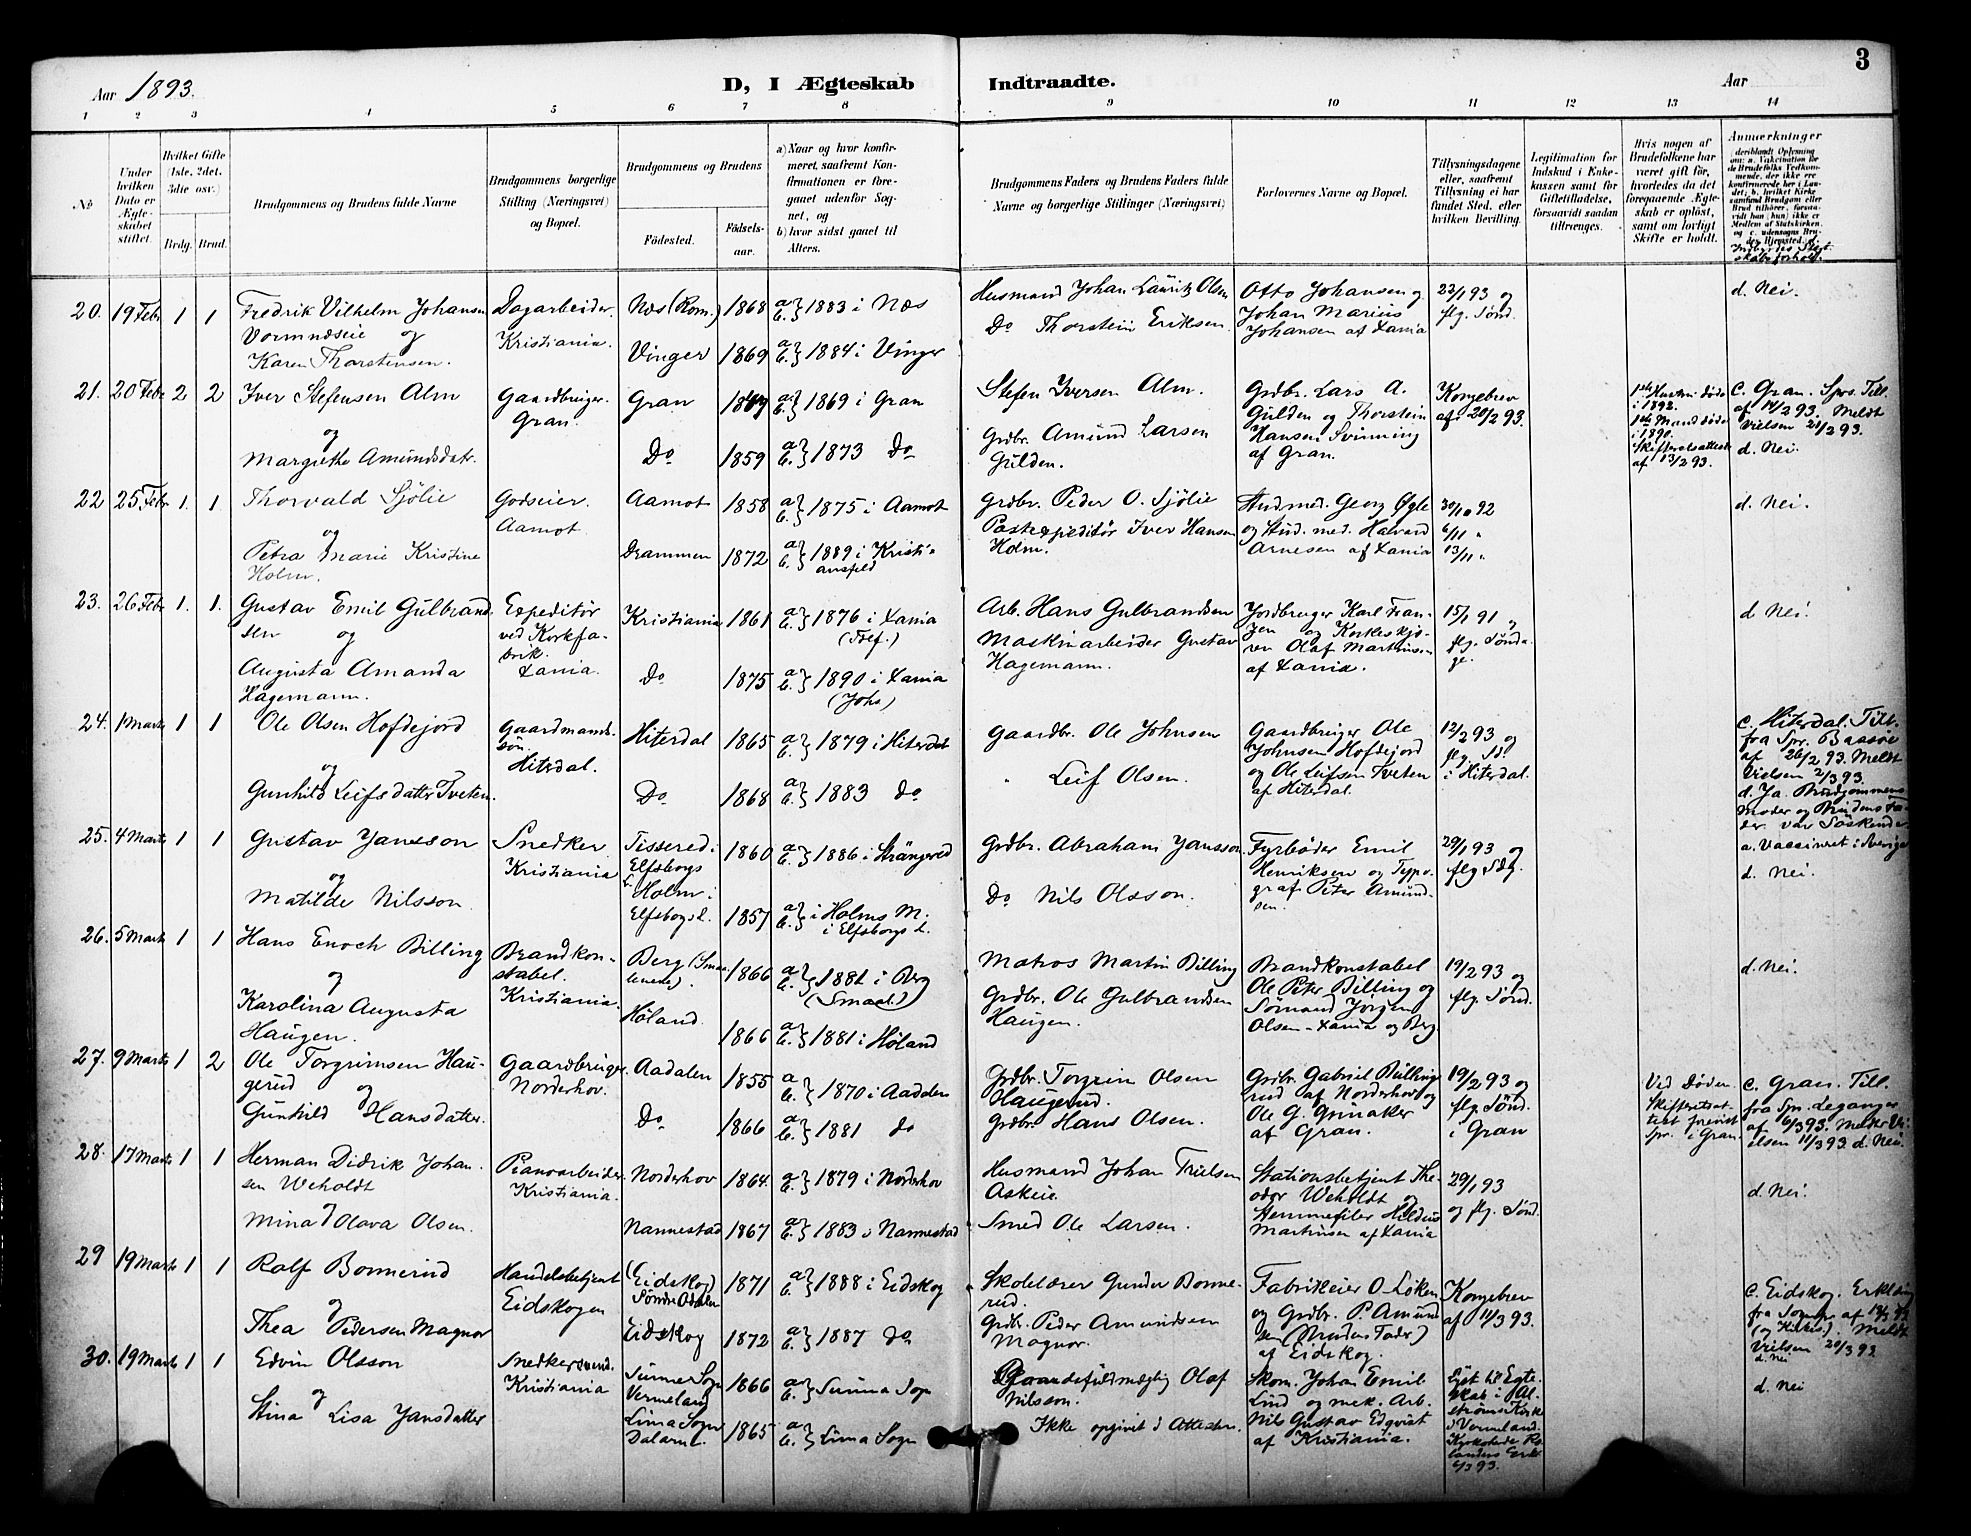 3
Aar 1893.
D, I Ægteskab Indtraadte.
Aar
1 2 3 4 5 6 7 8 9 10 11 12 13 14
No
Under hvilken Dato er Ægteskabet stiftet.
Hvilket Gifte (1ste, 2det, 3die osv.)
Brdg. Brud.
Brudgommens og Brudens fulde Navne
Brudgommens borgerlige Stilling (Næringsvei) og Bopæl.
Brudgommens og Brudens
Fødested.
Fødselsaar.
a) Naar og hvor konfirmeret, saafremt Konfirmationen er foregaaet udenfor Sognet, og
b) hvor sidst gaaet til Alters.
Brudgommens Faders og Brudens Faders fulde Navne og borgerlige Stillinger (Næringsvei)
Forlovernes Navne og Bopæl.
Tillysningsdagene eller, saafremt Tillysning ei har fundet Sted, efter hvilken Bevilling.
Legitimation for Indskud i Enkekassen samt for Giftetilladelse, forsaavidt saadan tiltrænges.
Hvis nogen af Brudefolkene har været gift før, hvorledes da det foregaaende Ægteskab er opløst, samt om lovligt Skifte er holdt.
Anmerkninger (deriblandt Oplysning om: a. Vakcination for de Brudefolks Vedkommende, der ikke ere konfirmerede her i Landet, b. hvilket Kirkesamfund Brudgom eller Brud tilhører, forsaavidt han (hun) ikke er Medlem af Statskirken, og c. udensogns Brudes Hjemsted.
20. 19 Febr 1 1 Fredrik Vilhelm Johansen Vormnæseie og Dagarbeider. Kristiania. Næs (Rom.) 1868 a. b. } 1883 i Næs Husmand Johan Lauritz Olsen Otto Johansen og Johan Marius Johansen af Xania 22/1 93 og flg. Sønd. d. Nei.
Karen Thorstensen. Vinger 1869 a. b. } 1884 i Vinger Do Thorstein Eriksen.
21. 20 Febr 2 2 Iver Stefensen Alm og Gaardbruger. Gran. Gran a. b. } 1869 i Gran Stefen Iversen Alm. Grdbr. Lars A. Gulden og Thorstein Hansen Svinning af Gran. Kongebrev af 20/2 93. 1ste Hustru døde i 1892. 1ste Mand døde i 1890. Skifteretsattest af 13/2 93. C. Gran. Spr. Till. af 14/2 93. Meldt Vielsen 21/2 93. d. Nei.
Margrethe Amundsdatr. Do 1859 a. b. } 1873 Do Grdbr. Amund Larsen Gulden.
22 25 Febr 1. 1. Thorvald Sjölie og Godseier. Aamot. Aamot 1858 a. b. } 1875 i Aamot Grdbr. Peder O. Sjölie Stud. med. Georg Øgle og Stud. med. Halvard Arnesen af Xania 30/10 92 6/11 " 13/11 " d. Nei.
Petra Marie Kristine Holm. Drammen 1872 a. b. } 1889 i Kristiansfeld Postexpeditör Iver Hansen Holm.
23. 26 Febr 1. 1. Gustav Emil Gulbrandsen og Expeditör ved Korkfabrik. Xania. Kristiania 1861 a. b. } 1876 i Xania (Tref.) Arb. Hans Gulbrandsen Jordbruger Karl Franzen og Korkeskjærer Olaf Martinsen af Xania. 15/1 91 " flg. Søndage. d. Nei.
Augusta Amanda Hagemann. Do 1875 a. b. } 1890 i Xania (Johs) Maskinarbeider Gustav Hagemann.
24. 1 Marts 1 1 Ole Olsen Hofdejord og Gaardmandssön. Hiterdal. Hiterdal 1865 a. b. } 1879 i Hiterdal Gaardbr. Ole Johnsen Gaardbruger Ole Johnsen Hofdejord og Ole Leifsen Tveten af Hiterdal. 12/2 93 og flg. Sd. i Hiterdal. C. Hiterdal. Till. fra Spr. Baasöe af 26/2 93. Meldt Vielsen 2/3 93. d. Ja. Brudgommens Moder og Brudens Fader var Söskende.
Gunhild Leifsdatter Tveten. Do 1868 a. b. } 1883 do " Leif Olsen.
25. 4 Marts 1 1 Gustav Jansson og Snedker Kristiania Tissered i Elfsborgs L. 1860 a. b. } 1886 i Strängered Grdbr. Abraham Jansson. Fyrbøder Emil Henriksen og Typograf Peter Amundsen. 29/1 93 og flg Sdg. a. Vaccineret i Sverige d. Nei.
Matilde Nilsson. Holm i Elfsborgs L. 1857 a. b. } i Holms M. i Elfsborgs L. Do Nils Olsson.
26. 5 Marts 1 1 Hans Enoch Billing og Brandkonstabel. Kristiania. Berg (Smaalenene). 1866 a. b. } 1881 i Berg (Smaal.) Matros Martin Billing Brandkonstabel Ole Peter Billing og Sømand Jørgen Olsen - Xania og Berg. 19/2 93 og flg. Sønd. d. Nei.
Karolina Augusta Haugen. Høland. 1866 a. b. } 1881 i Høland Grdbr. Ole Gulbrandsen Haugen.
27. 9 Marts 1 2 Ole Torgrimsen Haugerud og Gaardbruger. Norderhov. Aadalen 1855 a b. } 1870 i Aadalen Grdbr. Torgrim Olsen Haugerud. Grdbr. Gabriel Bullingrud af Norderhov og Ole G. Grinaker af Gran. 19/2 93 og flg. Sønd. i Gran Ved Döden. Skifteretsattest forevist Spr. i Gran. C. Gran. Till. fra Spr. Leganger af 6/3 93. Meldt Vielsen 11/3 93. d. Nei.
Gunhild Hansdatter. Do 1866 a. b. } 1881 do Grdbr. Hans Olsen.
28. 17 Marts 1 1 Herman Didrik Johansen Weholdt og Pianoarbeider Kristiania. Norderhov 1864. a. b. } 1879 i Norderhov Husmand Johan Trulsen Askeie. Stationsbetjent Theodor Weholdt og Hemmefiler Hildus Martinsen af Xania 29/1 93 og flg. Sønd. d. Nei.
Mina Olava Olsen. Nannestad 1867 a. b. } 1883 i Nannestad Smed Ole Larsen.
29 19 Marts 1 1 Rolf Bonnerud og Handelsbetjent Eidskogen (Eidskog) Søndre Odalen 1871 a. b. } 1888 i Eidskog Skolelærer Gunder Bonnerud. Fabrikeier O. Löken og Grdbr. P. Amundsen (Brudens Fader) af Eidskog. Kongebrev af 11/3 93. C. Eidskog. Erklæring fra Sognepr. af (og Kirkes.). Meldt Vielsen 20/3 93. d. Nei
Thea Pedersen Magnor Eidskog 1872 a. b. } 1887 do Grdbr. Peder Amundsen Magnor.
30. 19 Marts 1 1 Edvin Olsson og Snedkersvend. Kristiania Sunne Sogn Vermeland 1866 a. b. } Sunne Sogn Olaf Nilsson. Skom. Johan Emil Lind og mek. Arb. Nils Gustav Edqvist af Kristiania. Lyst til Egteskab i i Vermeland. 6/3 93. d. Nei
Stina Lisa Jansdatter Lima Sogn Dalarne. 1865 a. b. } Lima Sogn Ikke opgivet i Attesten.